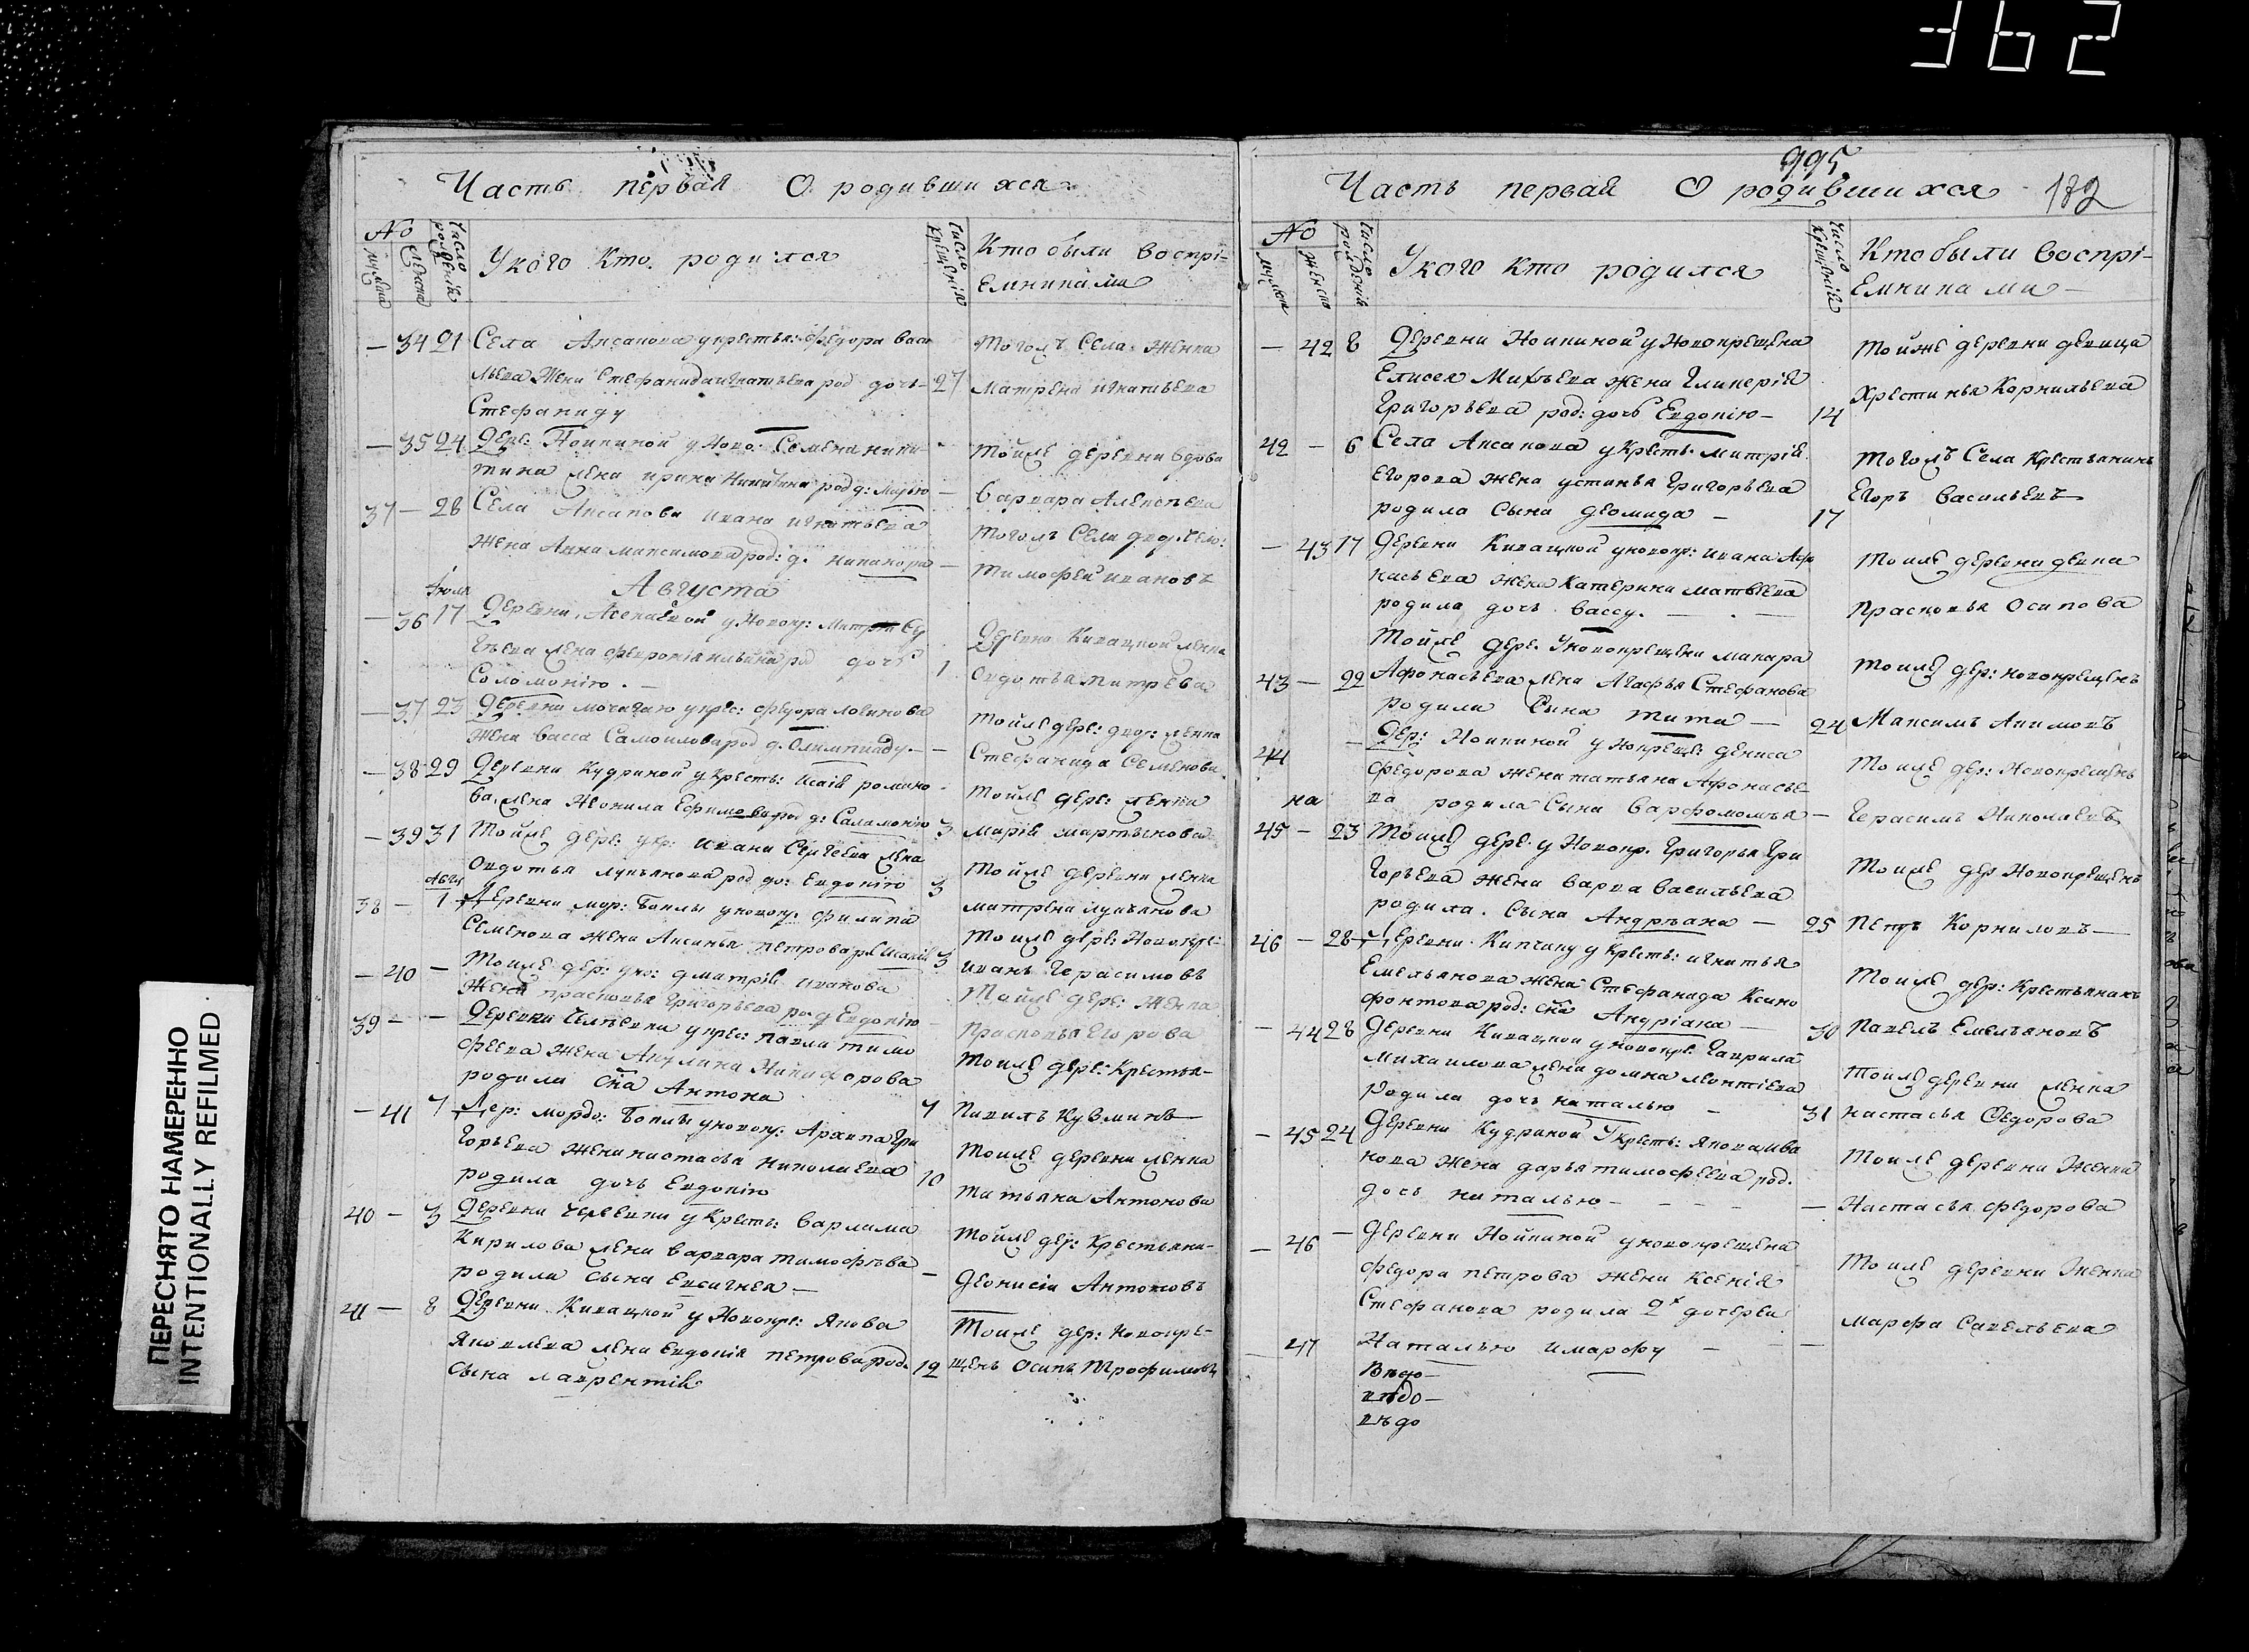 362
ПЕРЕСНЯТО НАМЕРЕННО
INTENTIONALLY REFILMED
Часть первая О родившихся
№
мужеска
женска
число рождения
У кого кто родился
число крещения
Кто были воспрі-
емниками
— 34 21 Села Аксакова у крестья: Федора Васи
льева жена Стефанида Игнатьева род дочь
Стефаниду
27
Тогожъ Села женка
Матрена Игнатьева
— 35 24 Дерев: Нойкиной у Ново: Семена Ники-
тина жена Ирина Никитина род д: Марью —
Тойже деревни вдова
Варвара Алексеева
37 — 28 Села Аксакова Ивана Игнатьева
жена Анна Максимова род: д. Никанора —
Тогожъ Села двор. чело:
Тимофей Ивановъ
Августа
Июля
— 36 17 Деревни у Новокр:
жена Феврония род дочь
Соломонію. —
1
Деревни Кивацкой женка
Овдотья Митрева
— 37 23 Деревни Мочагаю у крес: Федора Логинова
жена Васса Самойлова род д. Олимпиаду. —
Тойже дере: двор: женка
Стефанида Семенова
— 38 29 Деревни Кудриной у кресть: Исаія Романо
ва, жена Неонила Ефимова род д: Саламонію 3
Тойже дере: женка
Марія Мартынова
— 39 31 Тойже дере: у кр: Ивана Сергеева жена
Овдотья Лукьянова род до: Евдокію 3
Тойже деревни женка
Матрена Лукьянова
Авгус
38 — 1 Деревни мор: Боклы у новокр. Филипа
Семенова жена Аксинья Петрова р. Исаія 3
Тойже дере: Новокре:
Иванъ Герасимовъ
— 40 — Тойже дер: у но: Дмитрія Иванова
жена Прасковья Григорьева ро: д Евдокію
Тойже дере: женка
Прасковья Егорова
39 — — Деревни у крес: Павла Тимо
феева жена Акулина Никифорова
родила сна Антона
Тойже дере: Крестья-
7 Павилъ Кузминъ
— 41 7 Дер: мордо: Боклы у новокр: Архипа Гри
горьева жена Настасья Николаева
родила дочь Евдокію
10
Тойже деревни женка
Татьяна Антонова
40 — 3 Деревни у Кресть: Варлама
Кирилова жена Варвара Тимофѣва
родила сына Евсигнея —
Тойже дер: Крестьяни-
Деонисіи Антоновъ
41 — 8 Деревни Кивацкой у Новокре: Якова
Яковлева жена Евдокія Петрова род.
сына Лаврентія
12
Тойже дер: Новокре-
щенъ Осипъ Трофимовъ
995
Часть первая О родившихся
182
№
мужеска
женска
число рождения
У кого кто родился
число крещения
Кто были воспрі-
емниками —
— 42 8 Деревни Нойкиной у Новокрещена
Елисея жена Гликерія
Григорьева род: дочь Евдокію —
14
Тойже деревни девица
Хрестинья Корнильева
42 — 6 Села Аксакова у Кресть: Митрія
Егорова жена Устинья Григорьева
родила сына Деомида —
17
Тогожъ Села Крестьянинъ
Егоръ Васильевъ
— 43 17 Деревни Кивацкой у новокр: Ивана Афа
насьева жена Катерина Матвеева
родила дочь Вассу. —
Тойже деревни девка
Прасковья Осипова
Тойже дере: У новокрещена Макара
43 — 22 Афонасьева жена Агафья Стефанова
родила сына Тита —
24
Тойже дер: новокрещенъ
Максимъ Акимовъ
44 — Дер: Нойкиной у Нокрещ: Дениса
Федорова жена Татьяна Афонасье-
ва родила сына Варфоломья —
на
Тойже дер: Новокрещенъ
Герасимъ Николаевъ
45 — 23 Тойже дере: у Новокр. Григорья Гри
горьева жена Варва Васильева
родила. сына Андрѣана —
25
Тойже дер Новокрещенъ
Петръ Корниловъ —
46 — 28 Деревни Кипчаку у Кресть: Игнатья
Емельянова жена Стефанида Ксено
фонтова род: сна Андріана —
30
Тойже дер: Крестьянинъ
Павелъ Емельяновъ
— 44 28 Деревни Кивацкой у новокре: Гаврила
Михаилова жена Домна Леонтіева
родила дочь Наталью —
31
Тойже деревни женка
Настасья Федорова
— 45 24 Деревни Кудриной У Кресть: Якова Ива
нова жена Дарья Тимофеева род.
дочь Наталью — — —
Тойже деревни женка
— Настасья Федорова
— 46 — Деревни Нойкиной у новокрещена
Федора Петрова жена Ксенія
Стефанова родила 2х дочерей
Тойже деревни женка
Марфа Савельева
47 Наталью и Марфу — —